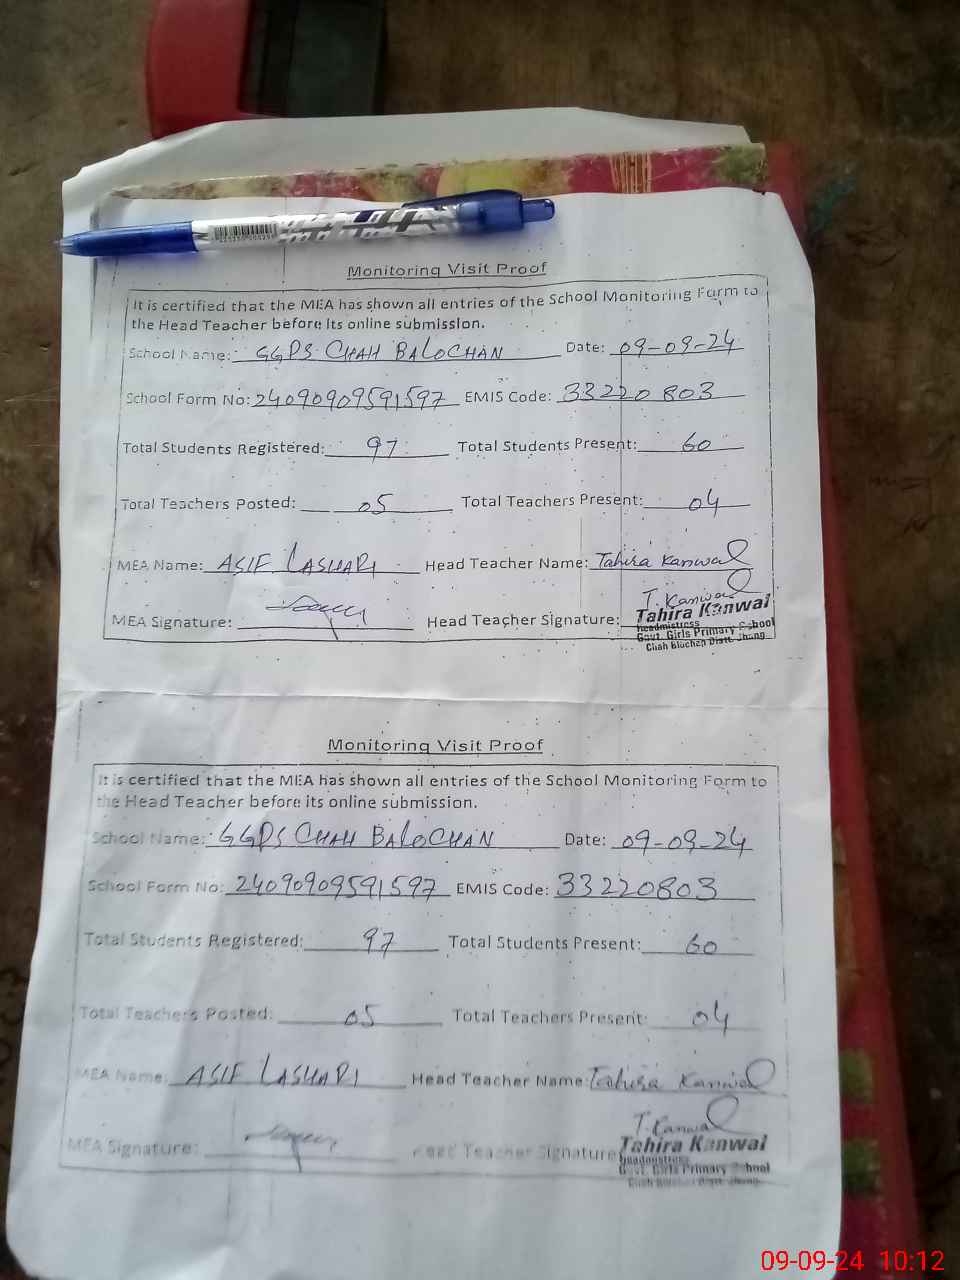 Monitoring Visit Proof
It is certified that the MEA has shown all entries of the School Monitoring Form to
the Head Teacher before its online submission.
School Name: GGPS CHAH BALOCHAN Date: 09-09-24
School Form No: 24090909591597 EMIS Code: 33220803
Total Students Registered: 97 Total Students Present: 60
Total Teachers Posted: 05 Total Teachers Present: 04
MEA Name: ASIF LASHARI Head Teacher Name: Tahira Kanwal
T. Kanwal
MEA Signature: Head Teacher Signature: Tahira Kanwal
headmistress
Govt. Girls Primary School
Chah Blochan Distt. Jhang
Monitoring Visit Proof
It is certified that the MEA has shown all entries of the School Monitoring Form to
the Head Teacher before its online submission.
School Name: GGPS CHAH BALOCHAN Date: 09-09-24
School Form No: 24090909591597 EMIS Code: 33220803
Total Students Registered: 97 Total Students Present: 60
Total Teachers Posted: 05 Total Teachers Present: 04
MEA Name: ASIF LASHARI Head Teacher Name: Tahira Kanwal
T. Kanwal
MEA Signature: Head Teacher Signature Tahira Kanwal
headmistress
Govt. Girls Primary School
Chah Blochan Distt. Jhang
09-09-24 10:12